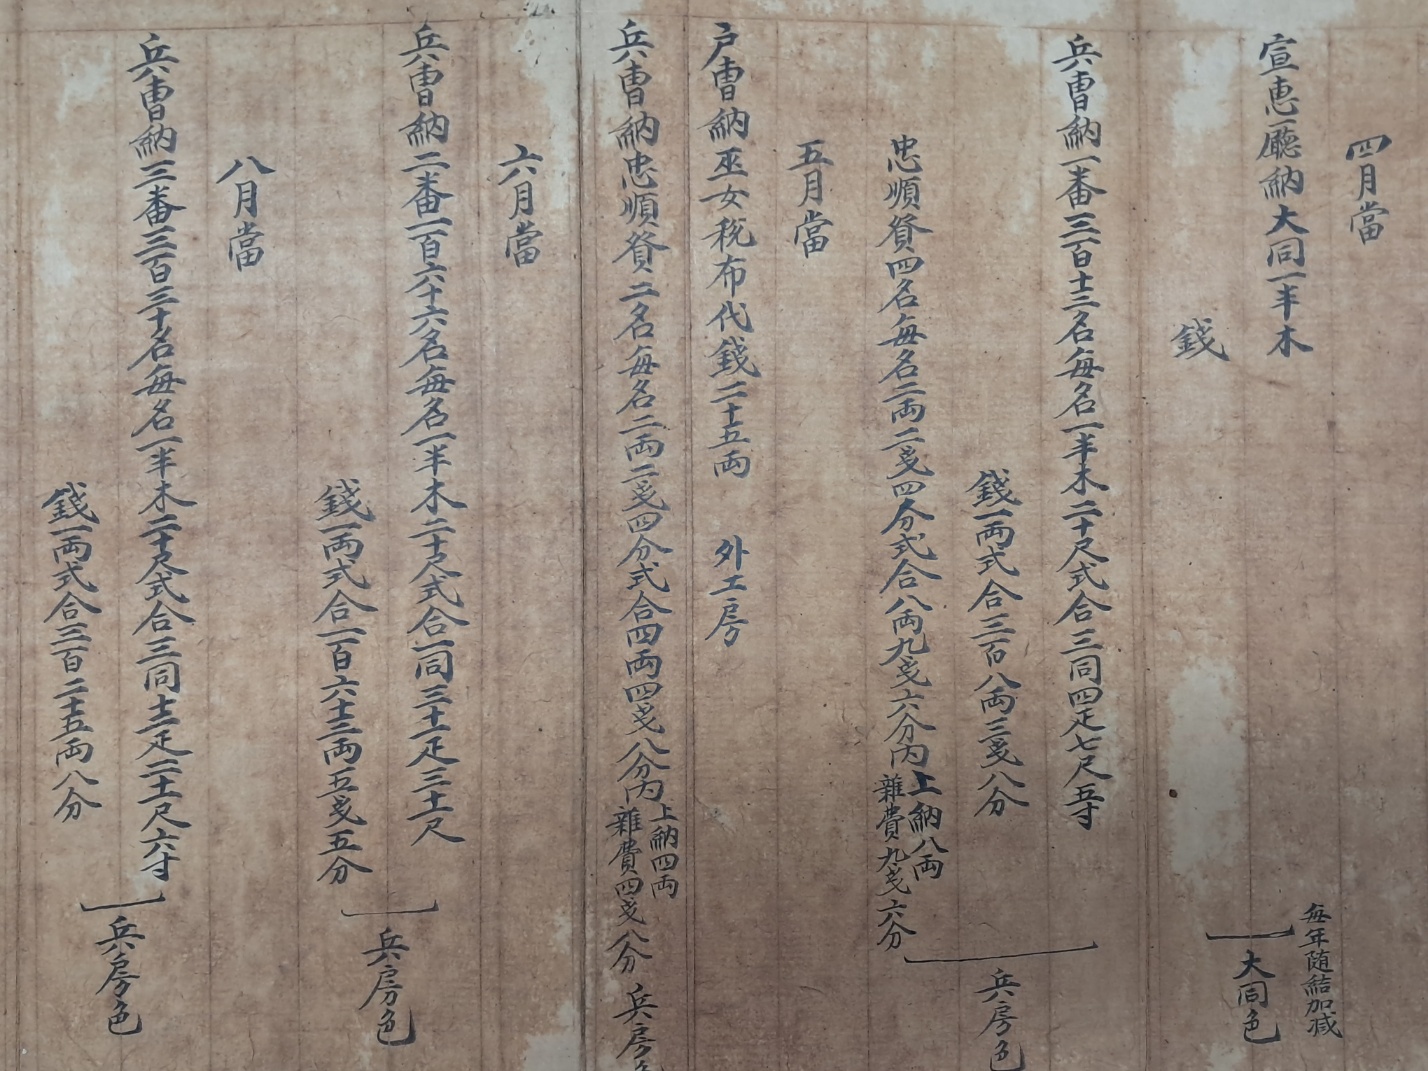 四月當
宣惠廳納大同一半木
錢
每年随結加减
大同色
兵曹納一番三百十三名每名一半木二十尺式合三同四疋七尺五寸
錢一両式合三百八両三戔八分
忠順貧四名每名二両二戔四分式合八両九戔六分內
上納八両
雜費九戔六分
兵房色
五月當
戶曹納巫女稅布代錢二十五両 外工房
兵曹納忠順貧二名每名二両二戔四分式合四両四戔八分內
上納四両
雜費四戔八分
兵房色
六月當
兵曹納二番一百六十六名每名一半木二十尺式合一同三十一疋三十一尺
錢一両式合一百六十三両五戔五分
兵房色
八月當
兵曹納三番三百三十名每名一半木二十尺式合三同十二疋二十一尺六寸
錢一両式合三百二十五両八分
兵房色